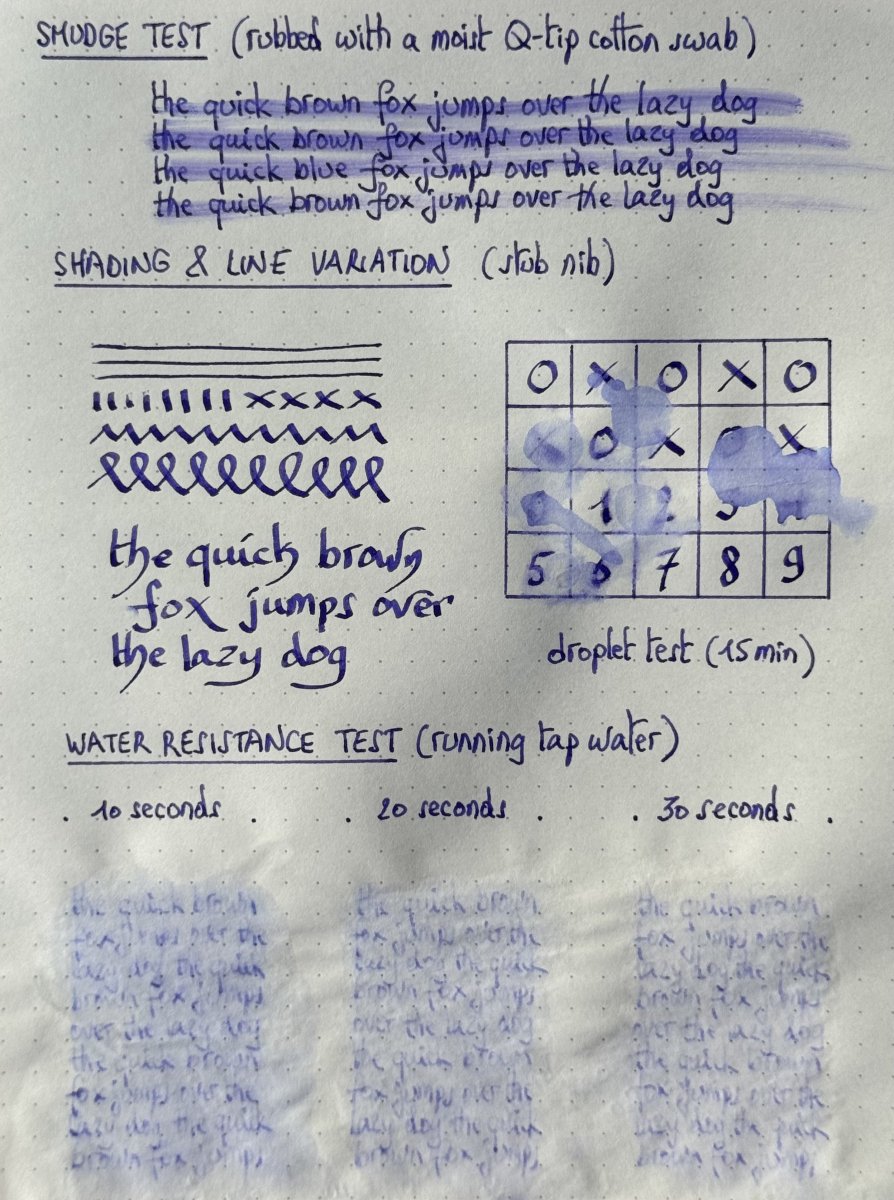 SMUDGE TEST (rubbed with a moist Q-tip cotton swab)
the quick brown fox jumps over the lazy dog
the quick brown fox jumps over the lazy dog
the quick blue fox jumps over the lazy dog
the quick brown fox jumps over the lazy dog
SHADING & LINE VARIATION (stub nib)
the quick brown
fox jumps over
the lazy dog
O X O X O
X O X O X
0 1 2 3 4
5 6 7 8 9
droplet test (15 min)
WATER RESISTANCE TEST (running tap water)
. 10 seconds . . 20 seconds . . 30 seconds .
the quick brown the quick brown the quick brown
fox jumps over the fox jumps over the fox jumps over the
lazy dog the quick lazy dog the quick lazy dog the quick
brown fox jumps brown fox jumps brown fox jumps
over the lazy dog over the lazy dog over the lazy dog
the quick brown the quick brown the quick brown
fox jumps over the fox jumps over the fox jumps over the
lazy dog the quick lazy dog the quick lazy dog the quick
brown fox jumps brown fox jumps brown fox jumps